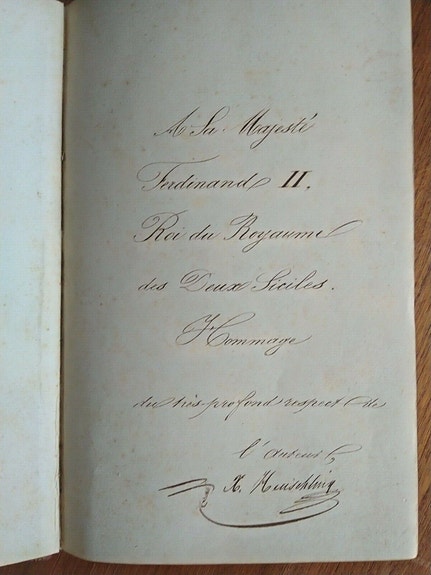 A Sa Majesté
Ferdinand II.
Roi du Royaume
des Deux Siciles.
Hommage
du très-profond respect de
l'auteur
X. Heuschling